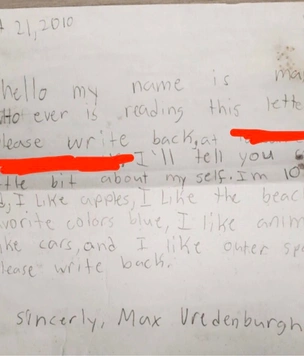 21, 2010
hello my name is
Who ever is reading this
please write back, at
I'll tell you
bit about my self. I'm 10
I Like apples, I Like the
colors blue, I like
cars, and I like outer
please write back.
Sincerly, Max Vredenburgh